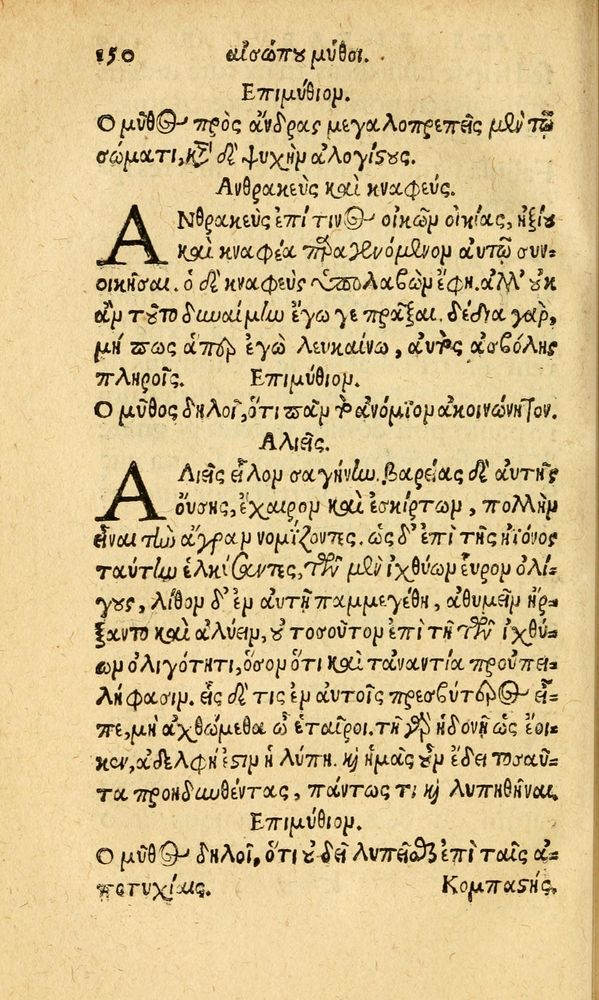 150 αἰσώπου μῦθοι.
Επιμύθιον.
Ο μῦθος πρὸς ἄνδρας μεγαλοπρεπεῖς μὲν τῷ
σώματι, κατὰ δὲ ψυχὴν ἀλογίστους.
Ανθρακεὺς καὶ κναφεύς.
ΑΝθρακεὺς ἐπί τινος οἰκῶν οἰκίας, ἠξίου
καὶ κναφέα παραγενόμενον αὐτῷ συν-
οικῆσαι. ὁ δὲ κναφεὺς ὑπολαβὼν ἔφη. ἀλλ' οὐκ
ἂν τοῦτο δυναίμην ἔγωγε πρᾶξαι. δέδια γὰρ,
μή πως ἅπερ ἐγὼ λευκαίνω, αὐτὸς ἀσβόλης
πληροῖς. Επιμύθιον.
Ο μῦθος δηλοῖ, ὅτι πᾶν τὸ ἀνόμοιον ἀκοινώνητον.
Αλιεῖς.
ΑΛιεῖς εἷλον σαγήνην. βαρείας δὲ αὐτῆς
οὔσης, ἔχαιρον καὶ ἐσκίρτων, πολλὴν
εἶναι τὴν ἄγραν νομίζοντες. ὡς δ' ἐπὶ τῆς ἠϊόνος
ταύτην ἑλκύσαντες, τῶν μὲν ἰχθύων εὗρον ὀλί-
γους, λίθον δ' ἐν αὐτῇ παμμεγέθη, ἀθυμεῖν ἤρ-
ξαντο καὶ ἀλύειν, οὐ τοσοῦτον ἐπὶ τῇ τῶν ἰχθύ-
ων ὀλιγότητι, ὅσον ὅτι καὶ τἀναντία προὐπει-
λήφασιν. εἷς δέ τις ἐν αὐτοῖς πρεσβύτερος εἶ-
πε, μὴ ἀχθώμεθα ὦ ἑταῖροι. τῇ γὰρ ἡδονῇ ὡς ἔοι-
κεν, ἀδελφή ἐστιν ἡ λύπη. καὶ ἡμᾶς οὖν ἔδει τοσαῦ-
τα προησθέντας, πάντως τι καὶ λυπηθῆναι.
Επιμύθιον.
Ο μῦθος δηλοῖ, ὅτι οὐ δεῖ λυπεῖσθαι ἐπὶ ταῖς ἀ-
ποτυχίαις. Κομπαστής.